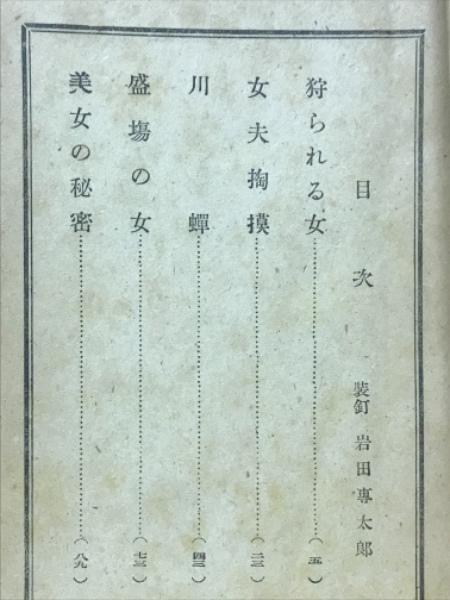 目次
装釘 岩田專太郎
狩られる女……………………（五）
女夫掏摸……………………（二三）
川蟬……………………（四三）
盛場の女……………………（七三）
美女の秘密……………………（八九）